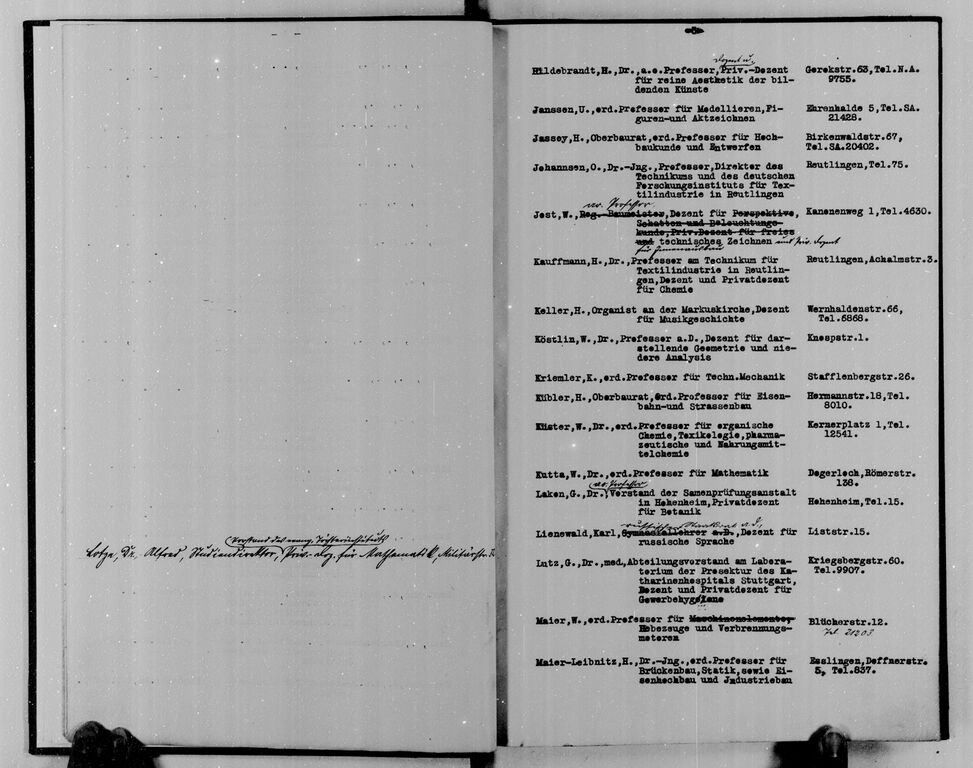 (Vorstand des evang. Töchterinstituts
Lotze, Dr. Alfred, Studiendirektor, Priv.-Doz. für Mathematik, Militärstr.
-5-
Dozent u.
Hildebrandt,H.,Dr.,a.o.Professor,Priv.-Dozent Gerokstr.63,Tel.N.A.
für reine Aesthetik der bil- 9755.
denden Künste
Janssen,U.,ord.Professor für Modellieren,Fi- Ehrenhalde 5,Tel.SA.
guren-und Aktzeichnen 21428.
Jassoy,H.,Oberbaurat,ord.Professor für Hoch- Birkenwaldstr.67,
baukunde und Entwerfen Tel.SA.20402.
Johannsen,O.,Dr.-Jng.,Professor,Direktor des Reutlingen,Tel.75.
Technikums und des deutschen
Forschungsinstituts für Tex-
tilindustrie in Reutlingen
ao. Professor
Jost,W.,Reg.-Baumeister,Dozent für Perspektive, Kanonenweg 1,Tel.4630.
Schatten-und Beleuchtungs-
kunde,Priv.Dozent für freies
und technisches Zeichnen und Priv. Dozent
für Innenausbau
Kauffmann,H.,Dr.,Professor am Technikum für Reutlingen,Achalmstr.3.
Textilindustrie in Reutlin-
gen,Dozent und Privatdozent
für Chemie
Keller,H.,Organist an der Markuskirche,Dozent Wernhaldenstr.66,
für Musikgeschichte Tel.6868.
Köstlin,W.,Dr.,Professor a.D.,Dozent für dar- Knospstr.1.
stellende Geometrie und nie-
dere Analysis
Kriemler,K.,ord.Professor für Techn.Mechanik Stafflenbergstr.26.
Kübler,H.,Oberbaurat,ord.Professor für Eisen- Hermannstr.18,Tel.
bahn-und Strassenbau 8010.
Küster,W.,Dr.,ord.Professor für organische Kernerplatz 1,Tel.
Chemie,Toxikologie,pharma- 12541.
zeutische und Nahrungsmit-
telchemie
Kutta,W.,Dr.,ord.Professor für Mathematik Degerloch,Römerstr.
138.
ao. Professor
Lakon,G.,Dr.,Vorstand der Samenprüfungsanstalt
in Hohenheim,Privatdozent Hohenheim,Tel.15.
für Botanik
russischer Staatsrat a.D.,
Lienewald,Karl,Gymnasiallehrer a.D.,Dozent für Liststr.15.
russische Sprache
Lutz,G.,Dr.,med.,Abteilungsvorstand am Labora- Kriegsbergstr.60.
torium der Prosektur des Ka- Tel.9907.
tharinenhospitals Stuttgart,
Dozent und Privatdozent für
Gewerbehygiene
Maier,W.,ord.Professor für Maschinenelemente, Blücherstr.12.
Hebezeuge und Verbrennungs- Tel. 21203
motoren
Maier-Leibnitz,H.,Dr.-Jng.,ord.Professor für Esslingen,Deffnerstr.
Brückenbau,Statik,sowie Ei- 5, Tel.837.
senhochbau und Jndustriebau